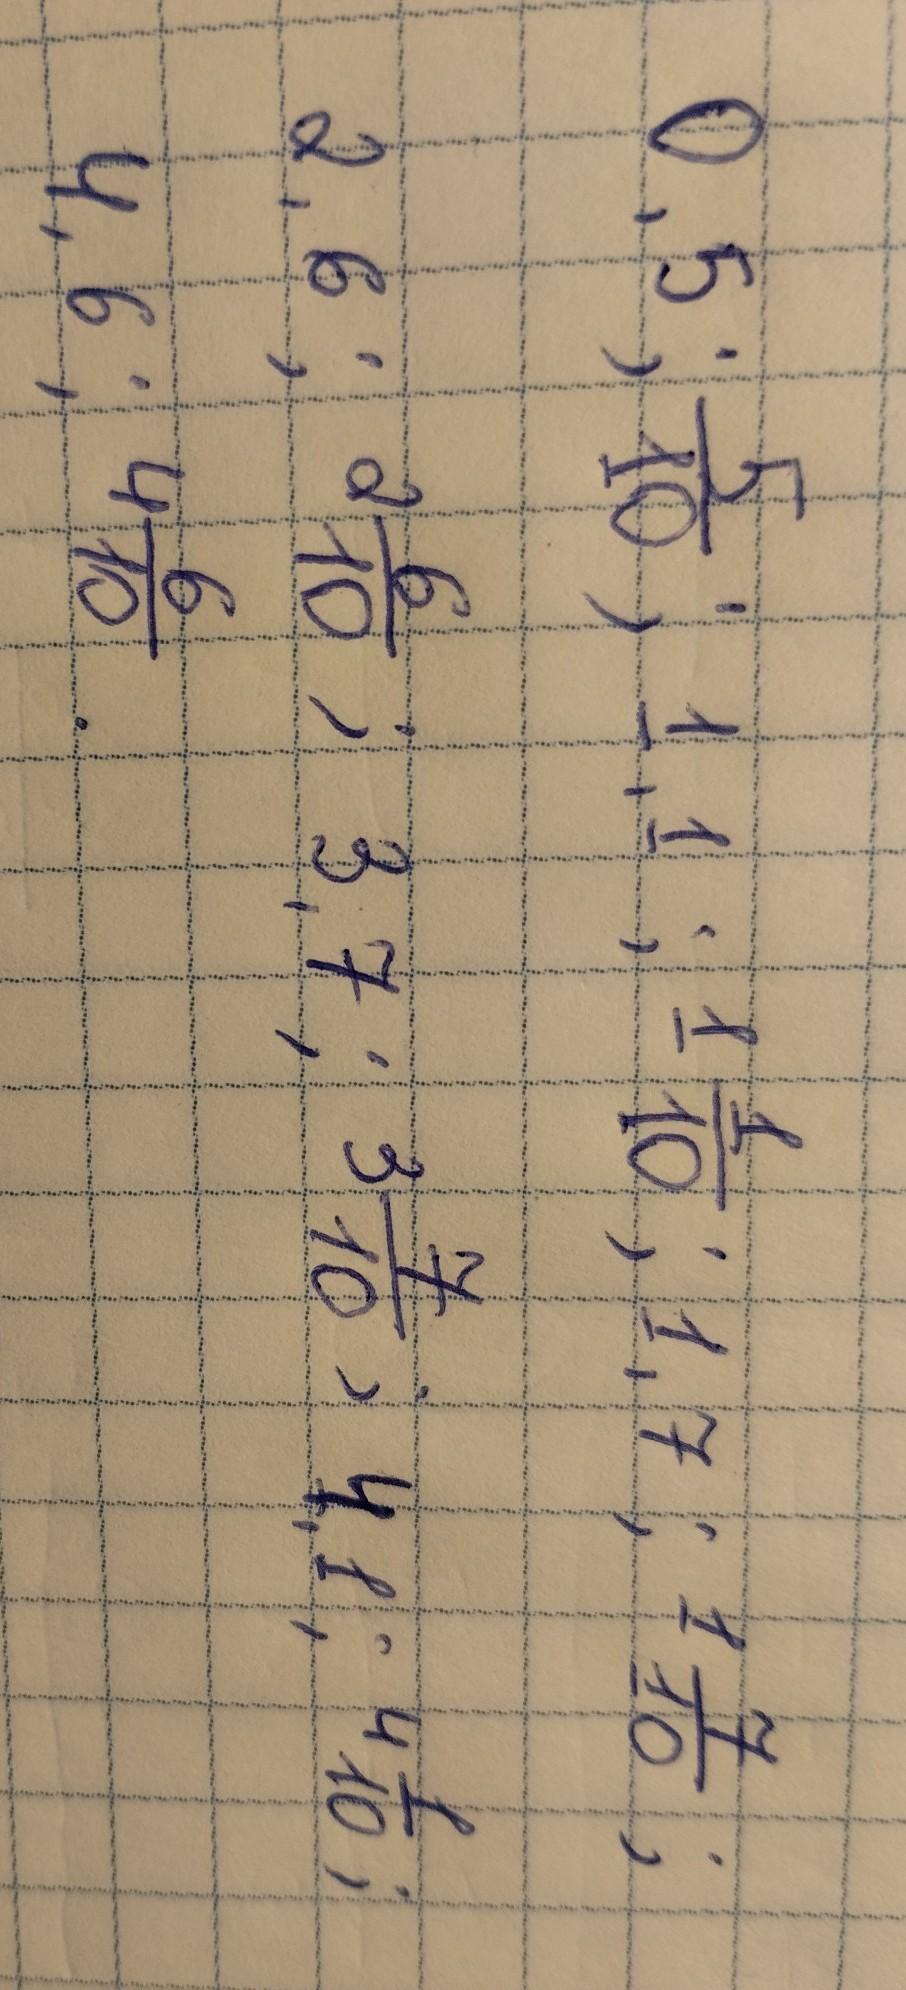 0,5; 5/10; 1,1; 1 1/10; 1,7; 1 7/10;
2,6; 2 6/10; 3,7; 3 7/10; 4,1; 4 1/10;
4,6; 4 6/10.